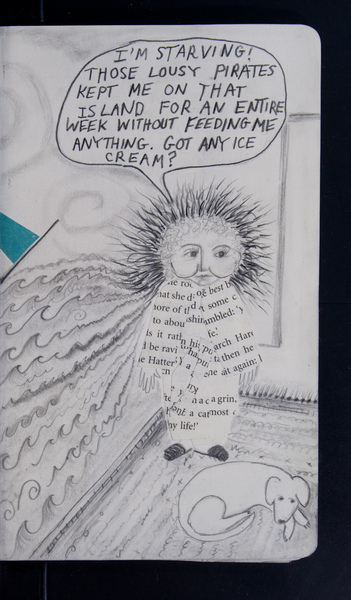 I'M STARVING!
THOSE LOUSY PIRATES
KEPT ME ON THAT
ISLAND FOR AN ENTIRE
WEEK WITHOUT FEEDING ME
ANYTHING. GOT ANY ICE
CREAM?
best
that she d
some c
more of
to abou
mbled:
is it rath
arch Hare
d be ravi
then he
e Hatter
at again;
a grin,
a carnost
my life!'